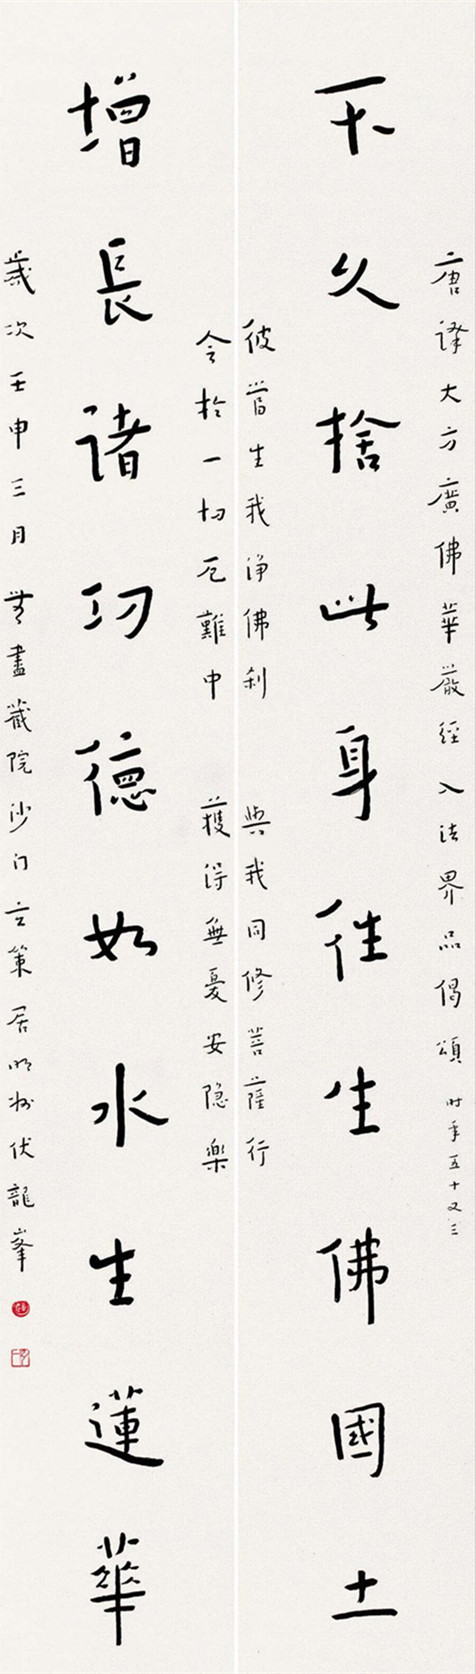 唐譯大方廣佛華嚴經入法界品偈頌 时年五十又三
不久捨此身往生佛國土
彼當生我淨佛刹 與我同修菩薩行
令於一切厄難中 獲得無憂安隐樂
增長諸功德如水生蓮華
歲次壬申三月 無盡藏院沙门立策居明州伏龍峯